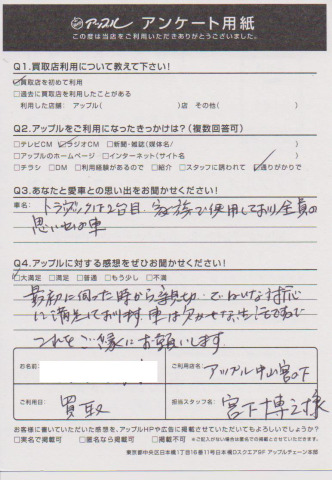 アップル アンケート用紙
この度は当店をご利用いただきありがとうございました。
Q1.買取店利用について教えて下さい!
☑買取店を初めて利用
□過去に買取店を利用したことがある
利用した店舗: アップル( )店 その他( )
Q2.アップルをご利用になったきっかけは?(複数回答可)
□テレビCM ☑ラジオCM □新聞・雑誌(媒体名/ )
□アップルのホームページ □インターネット(サイト名 )
□チラシ □DM □利用経験があるので □紹介 □スタッフに誘われて ☑通りがかりで
Q3.あなたと愛車との思い出をお聞かせください!
車名: は2台目.家族で使用しており全員の
思い出の車
Q4.アップルに対する感想をぜひお聞かせください!
☑大満足 □満足 □普通 □もう少し □不満
最初に伺った時から親切、ていねいな対応
に満足しております.車は欠かせない生活なので
これをご縁にお願いします.
お名前:
ご利用店名: アップル中山宮の下
ご利用日: 買取
担当スタッフ名: 宮下 様
お客様に書いていただいた感想を、アップルHPや広告に掲載させていただいてもよろしいでしょうか?
□実名で掲載可 □匿名なら掲載可 □掲載不可 ※ご記入がない場合は匿名での掲載とさせていただきます。
東京都中央区日本橋1丁目16番11号日本橋DスクエアBF アップルチェーン本部